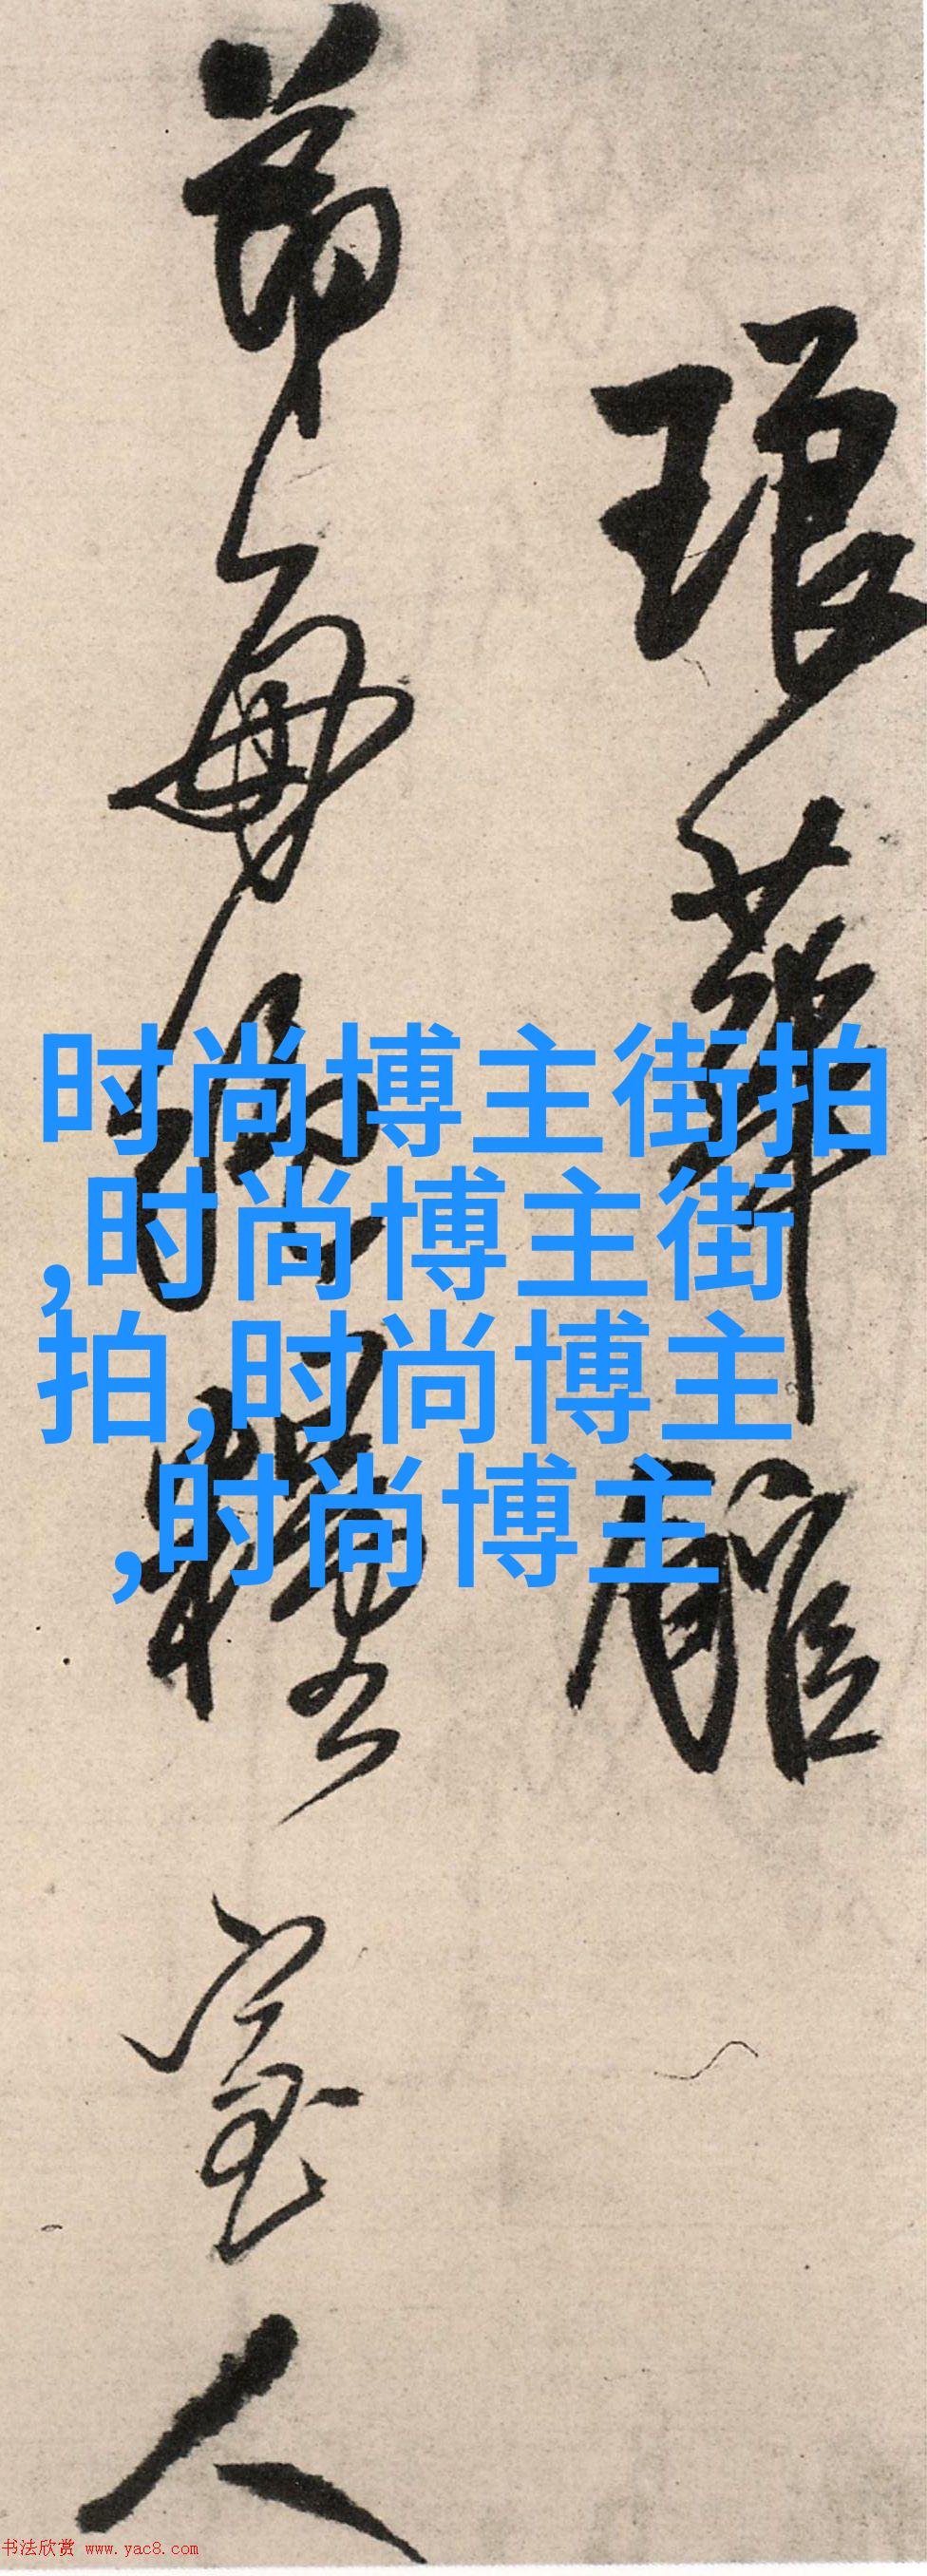 琅華館
帖每致禮堂人
时尚博主街拍
,时尚博主街
拍,时尚博主
,时尚博主
书法欣赏 www.yac8.com